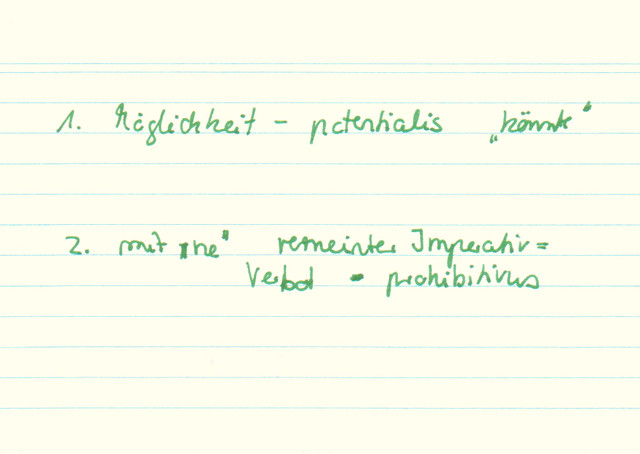 1. Möglichkeit - potentialis „könnte"
2. mit „ne" verneinter Imperativ =
Verbot - prohibitivus